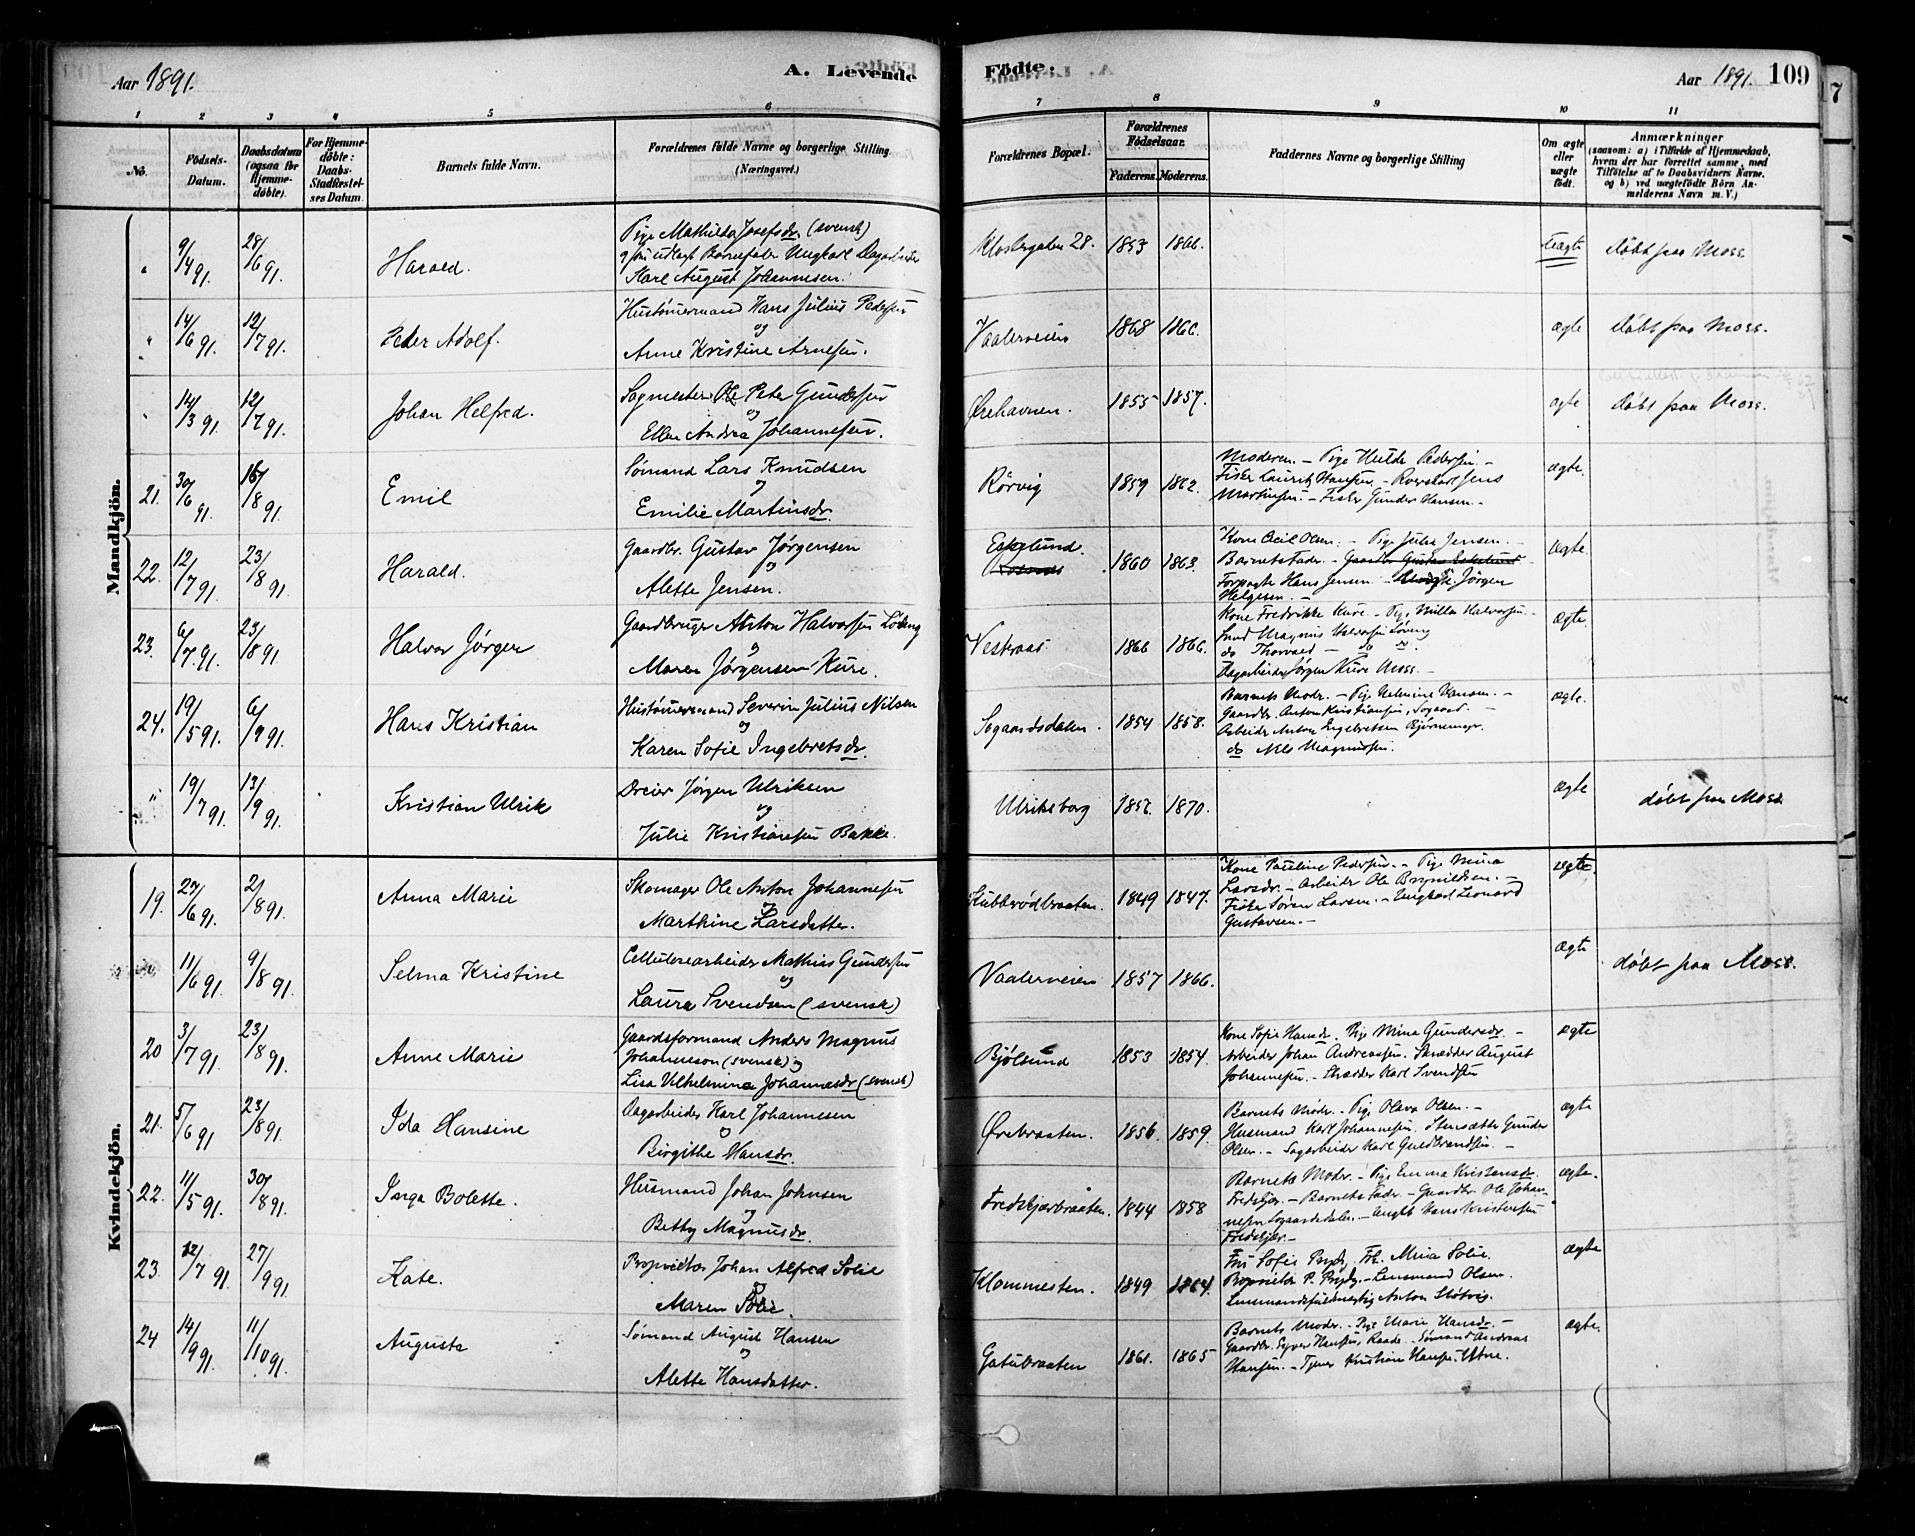 Aar 1891.
A. Levende
Födte.
Aar 1891. 109
1 2 3 4 5 6 7 8 9 10 11
No.
Födsels-
Datum.
Daabsdatum
(ogsaa for
Hjemme-
döbte).
For Hjemme-
döbte:
Daabs-
Stadfæstel-
ses Datum.
Barnets fulde Navn.
Forældrenes fulde Navne og borgerlige Stilling.
(Næringsvei.)
Forældrenes Bopæl.
Forældrenes
Födselsaar.
Faderens. Moderens.
Faddernes Navne og borgerlige Stilling
Om ægte
eller
uægte
födt.
Anmærkninger
(saasom: a) i Tilfælde af Hjemmedaab,
hvem der har forrettet samme, med
Tilföielse af to Daabsvidners Navne,
og b) ved uægtefödte Börn An-
melderens Navn m. V.)
Mandkjön.
" 9/4 91. 28/6 91. Harald.
Pige Mathilda Josefsdr (svensk)
og som udlagt Barnefader Ungkarl Dagarbeider
Karl August Johannesen.
Klostergaten 28. 1853 1866. uægte døbt paa Moss
" 14/6 91. 12/7 91. Peder Adolf.
Hustømermand Hans Julius Pedersen
og
Anne Kristine Arnesen.
Vaalerveien 1868 1866. ægte døbt paa Moss.
" 14/3 91. 12/7 91. Johan Helfred.
Sagmester Ole Peter Gundersen
og
Ellen Andrea Johannesen.
Ørehavnen. 1855 1857. ægte døbt paa Moss.
21. 30/6 91. 16/8 91. Emil
Sømand Lars Knudsen
og
Emilie Martinsdr.
Rörvig 1859 1862.
Moderen. – Pige Hulda Pedersen. –
Fisker Laurits Hansen. – Jens
Martinsen. – Fisker Gunder Hansen. –
ægte.
22. 12/7 91. 23/8 91. Harald.
Gaardbr. Gustav Jørgensen
og
Alette Jensen.
Eskelund. 1860 1863.
Kone Olsen. – Pige Julie Jensen. –
Barnets Fader. – Gaardbr Gustav Eskelund
Forpagter Hans Jensen – Jörgen
Helgesen. –
ægte.
23. 6/7 91. 23/8 91 Halvor Jørgen
Gaardbruger Anton Halvorsen Löken
og
Maren Jørgensen Kure.
Vestraas 1866 1866.
Kone Fredrikke Kure. – Pige Milla Halvorsen.
Magnus Halvorsen
do Thorvald – do
Dagarbeider Jørgen Kure Moss. –
ægte.
24. 19/5 91. 6/9 91. Hans Kristian
Hustømermand Severin Julius Nilsen
og
Karen Sofie Ingebretsdr.
Sogaardsdalen. 1854 1858.
Barnets Moder. – Pige Helmine Hansen. –
Gaardbr. Anton Kristiansen, Sogaard. –
Arbeider Anton Ingebretsen Bjørnemyr.
do Nils Magnussen.
ægte.
" 19/7 91. 13/9 91. Kristian Ulrik
Dreier Jørgen Ulriksen
og
Julie Kristiansen Bakke.
Ulriksborg 1870. ægte døbt paa Moss
Kvindekjön.
19. 27/6 91. 2/8 91. Anna Marie
Skomager Ole Anton Johannesen
og
Marthine Larsdatter.
Kubberödbraaten. 1849 1847.
Kone Pauline Pedersen. – Pige Mina
Larsdr. – Arbeider Ole Brynildsen. –
Fisker Søren Larsen. – Ungkarl Leonard
Gustavsen. –
ægte.
11/6 91. 9/8 91. Selma Kristine
Cellulosearbeider Mathias Gundersen
og
Laura Svendsen (svensk)
Vaalerveien 1857 1866. ægte døbt paa Moss.
20 3/7 91. 23/8 91. Anne Marie
Gaardsformand Anders Magnus
Johanneson (svensk) og
Lisa Vilhelmina Johannesdr (svensk)
Bjölsund 1853 1854.
Kone Sofie Hansdr. Pige Mina Gundersdr –
Arbeider Johan Andreassen. Skrædder August
Johannesen. – Skrædder Karl Svendsen
ægte
21. 5/6 91 23/8 91. Ida Hansine
Dagarbeider Karl Johannesen
og
Birgithe Hansdr.
Ørebraaten. 1856. 1859.
Barnets Moder. – Pige Olava Olsen. –
Husmand Karl Johannesen. Stensætter Gunder
Olsen. – Sagarbeider Karl Guldbrandsen. –
ægte
22. 11/5 91. 30/8 91. Inga Bolette.
Husmand Johan Johnsen
og
Betty Magnusdr.
Fredskjærbraaten. 1844 1858
Barnets Moder. – Pige Emma Kristensdr.
– Barnets Fader. – Gaardbr. Ole Johan-
nesen Sogaardsdalen. – Ungk. Hans Kristensen
ægte.
23. 12/7 91. 27/9 91. Kate.
Proprietær Johan Alfred Solie
og
Maren Solie.
Klommesten. 1849 1864.
Fru Sofie Prydz. Frk. Mina Solie.
Proprietær P. Prydz. – Lensmand Olsen.
Lensmandsfuldmægtig Anton
ægte
24 14/9 91. 11/10 91. Augusta
Sømand August Hansen
og
Alette Hansdatter.
Gatubraaten 1861. 1865
Barnets Moder. – Pige Marie Hansdr. –
Gaardbr. Syver Hansen, Raade. Sømand Andreas
Hansen. – Tjener Kristian Hansen
ægte.